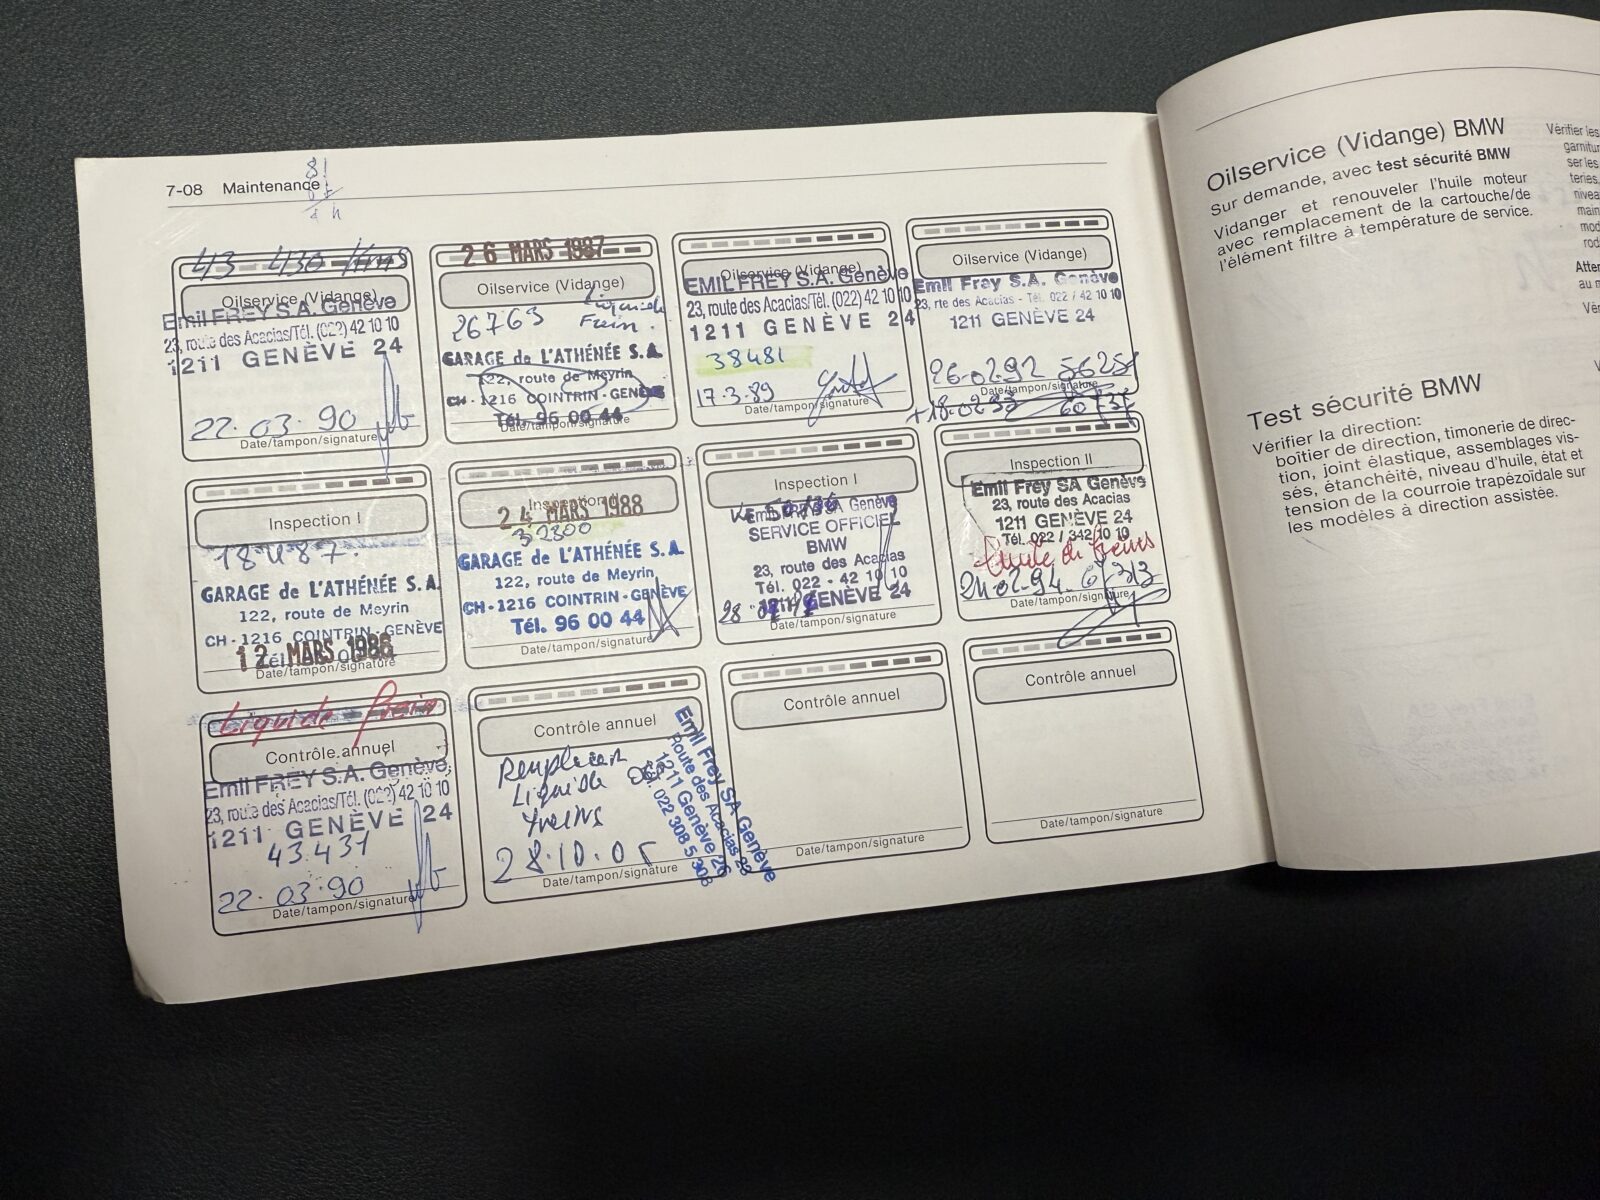 7-08 Maintenance
43 430 Kms
Oilservice (Vidange)
Emil FREY S.A. Genève
23, route des Acacias/Tél. (022) 42 10 10
1211 GENÈVE 24
22.03.90
Date/tampon/signature
26 MARS 1987
Oilservice (Vidange)
26763
Liquide
Frein.
GARAGE de L'ATHÉNÉE S.A.
122, route de Meyrin
CH-1216 COINTRIN-GENÈVE
Tél. 96 00 44
Date/tampon/signature
Oilservice (Vidange)
EMIL FREY S.A. Genève
23, route des Acacias/Tél. (022) 42 10 10
1211 GENÈVE 24
38481
17.3.89
Date/tampon/signature
Oilservice (Vidange)
Emil Frey S.A. Genève
23, rte des Acacias - Tél. 022 / 42 10 10
1211 GENÈVE 24
26.02.92
Date/tampon/signature
Inspection I
18487.
GARAGE de L'ATHÉNÉE S.A.
122, route de Meyrin
CH-1216 COINTRIN-GENÈVE
12 MARS 1986
Date/tampon/signature
Inspection
24 MARS 1988
32800
GARAGE de L'ATHÉNÉE S.A.
122, route de Meyrin
CH-1216 COINTRIN-GENÈVE
Tél. 96 00 44
Date/tampon/signature
Inspection I
Emil FREY SA Genève
SERVICE OFFICIEL
BMW
23, route des Acacias
Tél. 022 - 42 10 10
1211 GENÈVE 24
Date/tampon/signature
Inspection II
Emil Frey SA Genève
23, route des Acacias
1211 GENÈVE 24
Tél. 022 / 342 10 10
24.02.94
Date/tampon/signature
Liquide frein
Contrôle annuel
Emil FREY S.A. Genève
23, route des Acacias/Tél. (022) 42 10 10
1211 GENÈVE 24
43.431
22.03.90
Date/tampon/signature
Contrôle annuel
Liquide
freins
28.10.05
Emil Frey SA Genève
Route des Acacias 23
1211 Genève 26
Tél. 022 308 5 308
Date/tampon/signature
Contrôle annuel
Date/tampon/signature
Contrôle annuel
Date/tampon/signature
Oilservice (Vidange) BMW
Sur demande, avec test sécurité BMW
Vidanger et renouveler l'huile moteur
avec remplacement de la cartouche/de
l'élément filtre à température de service.
Test sécurité BMW
Vérifier la direction:
boîtier de direction, timonerie de direc-
tion, joint élastique, assemblages vis-
sés, étanchéité, niveau d'huile, état et
tension de la courroie trapézoïdale sur
les modèles à direction assistée.
Vérifier les
garnitur
ser les
teries,
nivea
main
mod
rod
Atter
au m
Vér